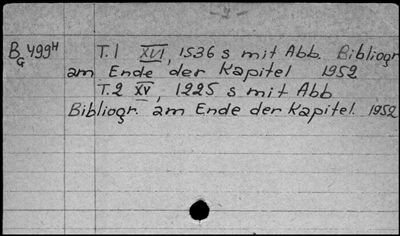 B_G 499^H T.1 XVI, 1536 s mit Abb. Bibliogr
am Ende der Kapitel 1952
T.2 XV, 1225 s mit Abb
Bibliogr. am Ende der Kapitel. 1952